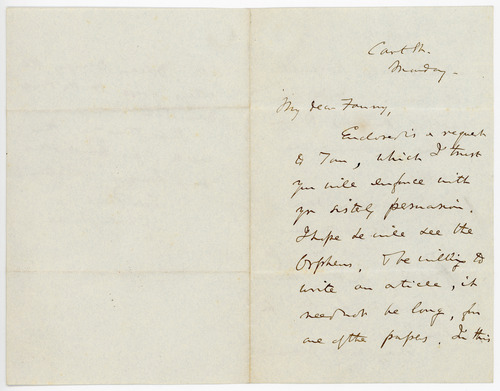 Court St.
Monday.
My dear Fanny,
Enclosed is a request
to Tom, which I trust
you will enforce with
yr sisterly persuasion.
I hope he will see the
Orpheus, & be willing to
write an article, it
need not be long, for
one of the papers. In this